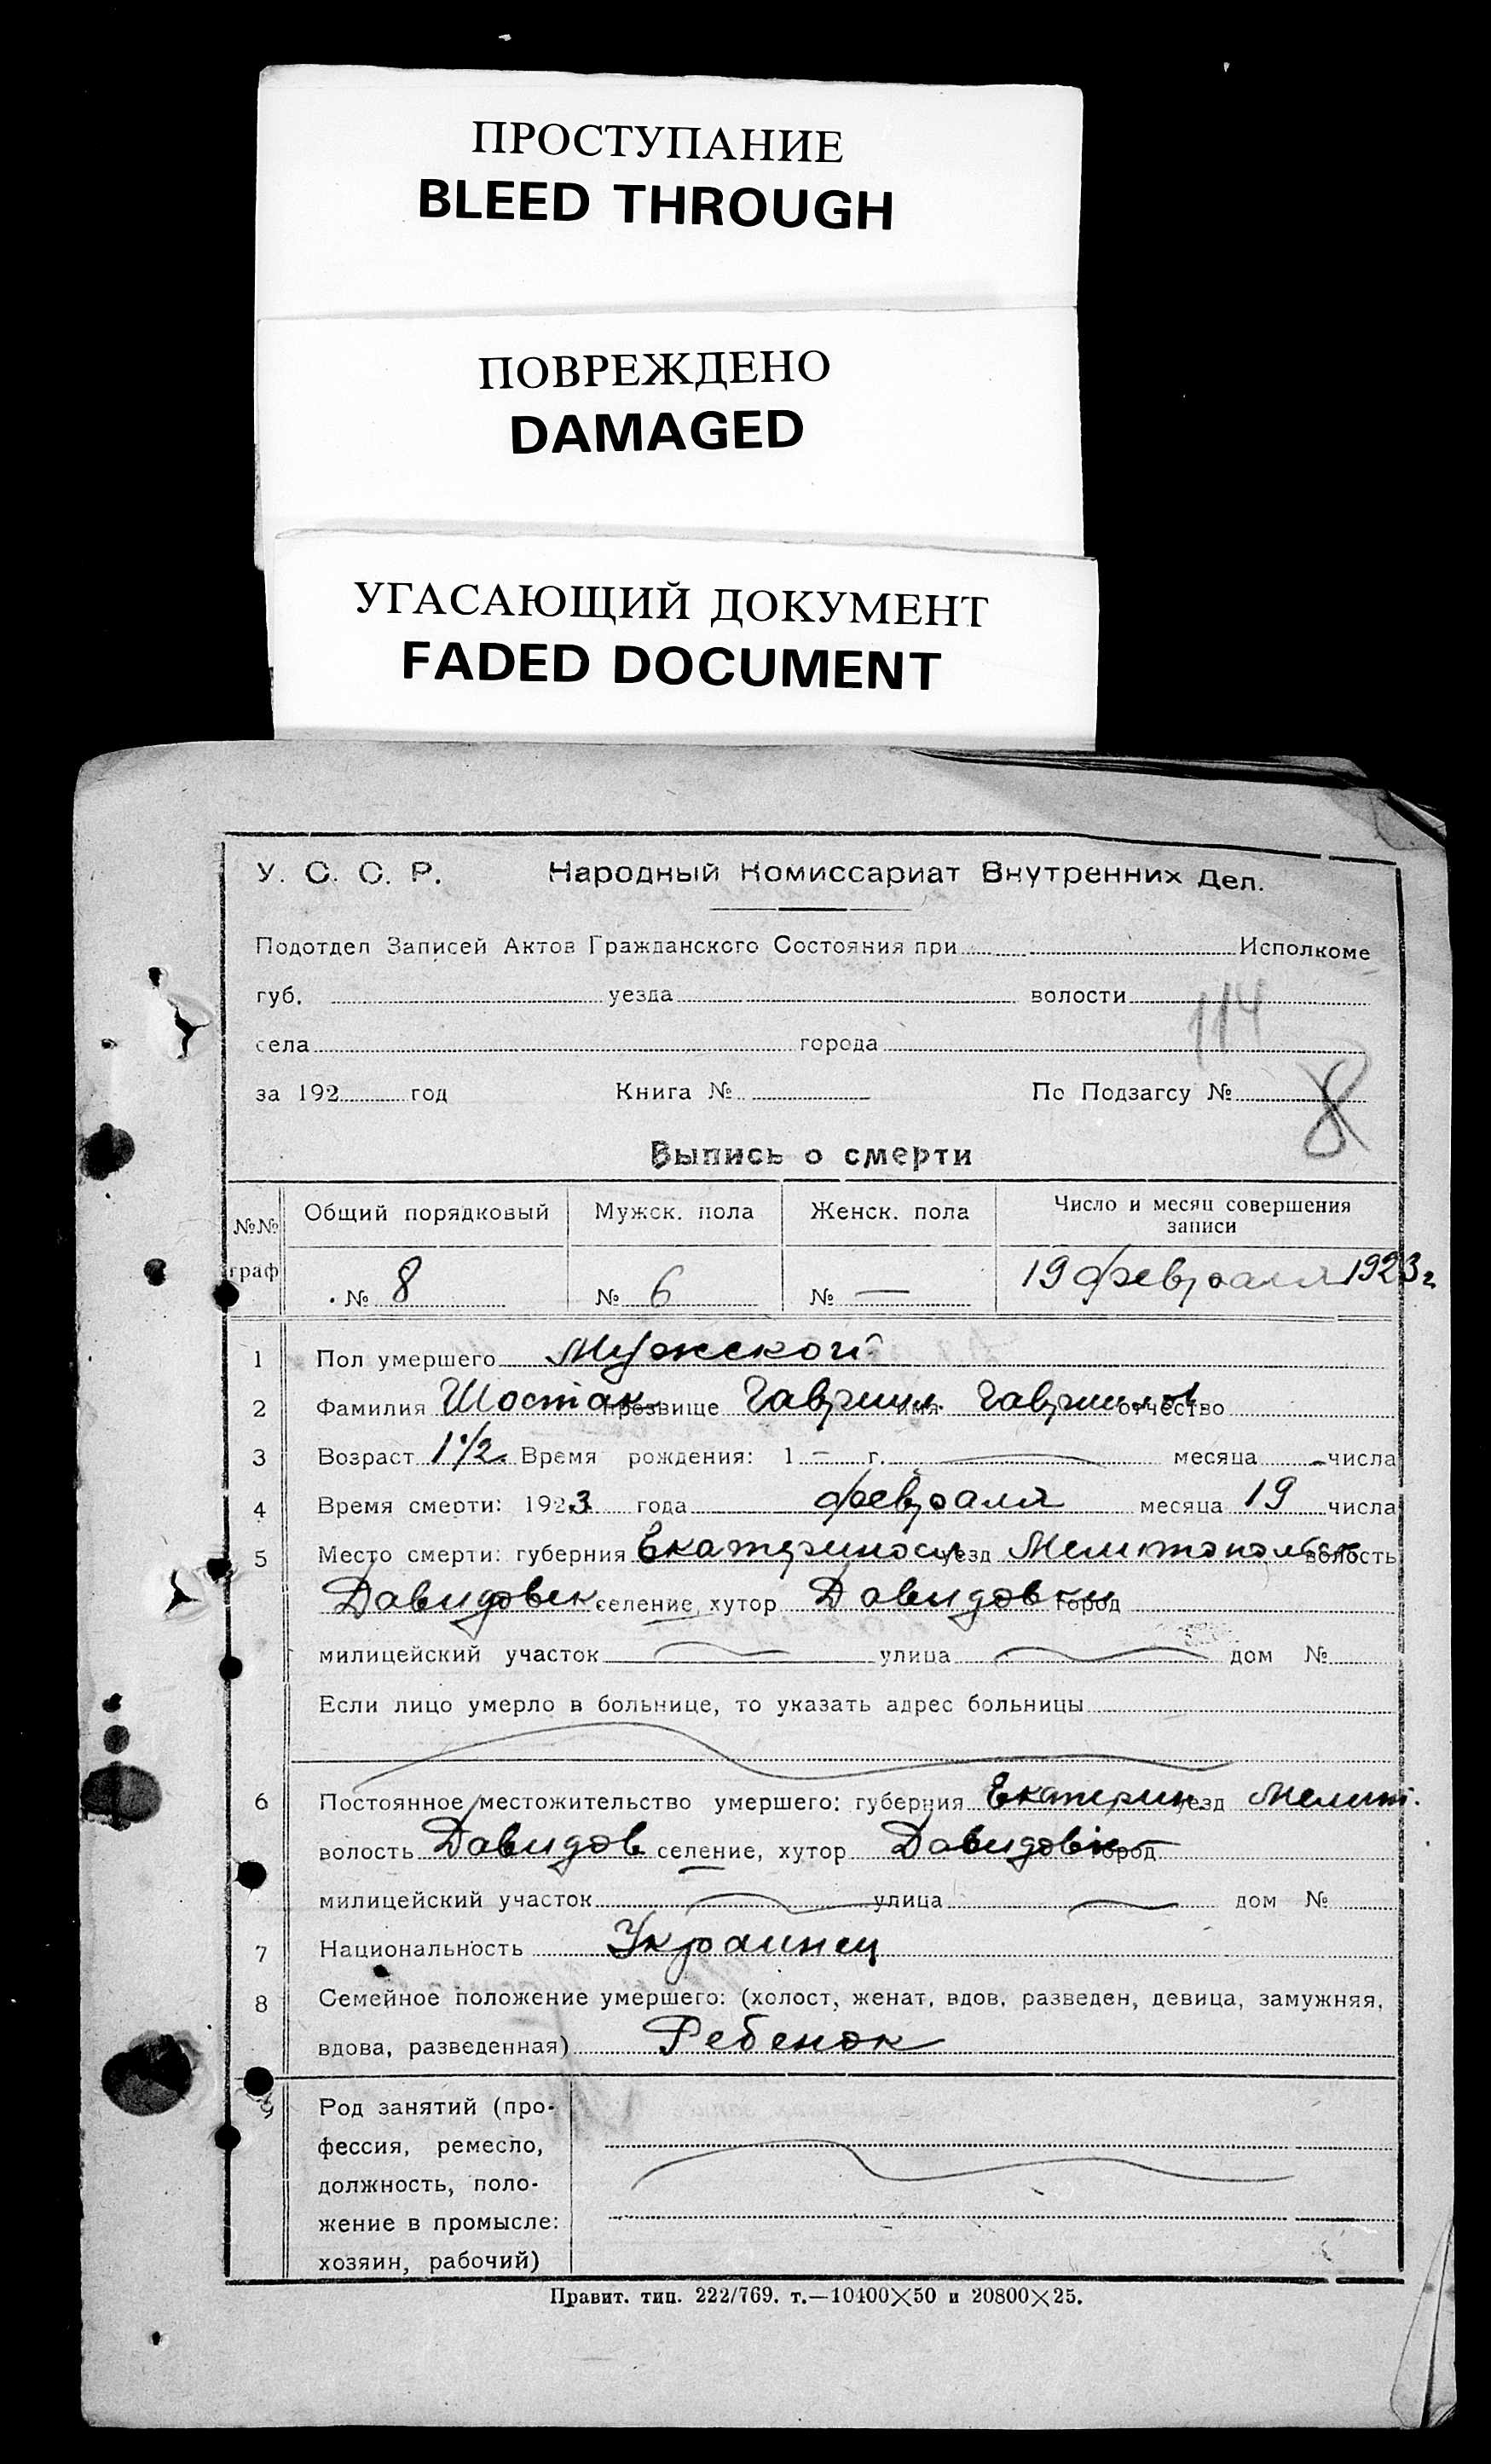 ПРОСТУПАНИЕ
BLEED THROUGH
ПОВРЕЖДЕНО
DAMAGED
УГАСАЮЩИЙ ДОКУМЕНТ
FADED DOCUMENT
У. С. С. Р. Народный Комиссариат Внутренних Дел.
Подотдел Записей Актов Гражданского Состояния при Исполкоме
губ. уезда волости
114
села города
за 192 год Книга № По Подзагсу № 8
Выпись о смерти
№№ граф Общий порядковый Мужск. пола Женск. пола Число и месяц совершения записи
№ 8 № 6 № — 19 февраля 1923 г
1 Пол умершего Мужской
2 Фамилия Шостак прозвище Гавриил имя Гаврилов отчество
3 Возраст 1 1/2 Время рождения: 1 — г. — месяца — числа
4 Время смерти: 1923 года февраля месяца 19 числа
5 Место смерти: губерния Екатериносл уезд Мелитопольск волость
Давидовск селение, хутор Давидовки город
милицейский участок — улица — дом №
Если лицо умерло в больнице, то указать адрес больницы
6 Постоянное местожительство умершего: губерния Екатерин. уезд Мелит.
волость Давидов селение, хутор Давидовк город
милицейский участок — улица — дом №
7 Национальность Украинец
8 Семейное положение умершего: (холост, женат, вдов, разведен, девица, замужняя,
вдова, разведенная) Ребенок
9 Род занятий (про-
фессия, ремесло,
должность, поло-
жение в промысле:
хозяин, рабочий)
Правит. тип. 222/769. т.—10400×50 и 20800×25.